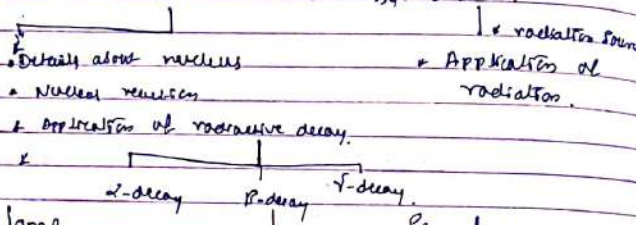 * radiation Sour
• Details about nucleus
* Application of
• Nuclear reaction
radiation.
* Application of radractive decay.
*
α-decay β-decay γ-decay.